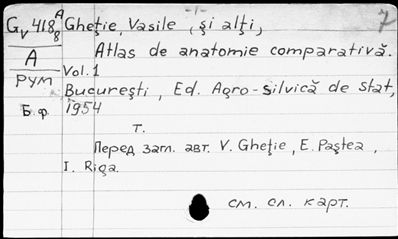 -1-
Gv 418 A/8 Gheție, Vasile, și alți, 7
A Atlas de anatomie comparativă.
Vol. 1
РУМ București, Ed. Agro-silvică de stat,
Б.ф. 1954
т.
Перед загл. авт. V. Gheție, E. Paștea,
I. Riga.
см. сл. карт.